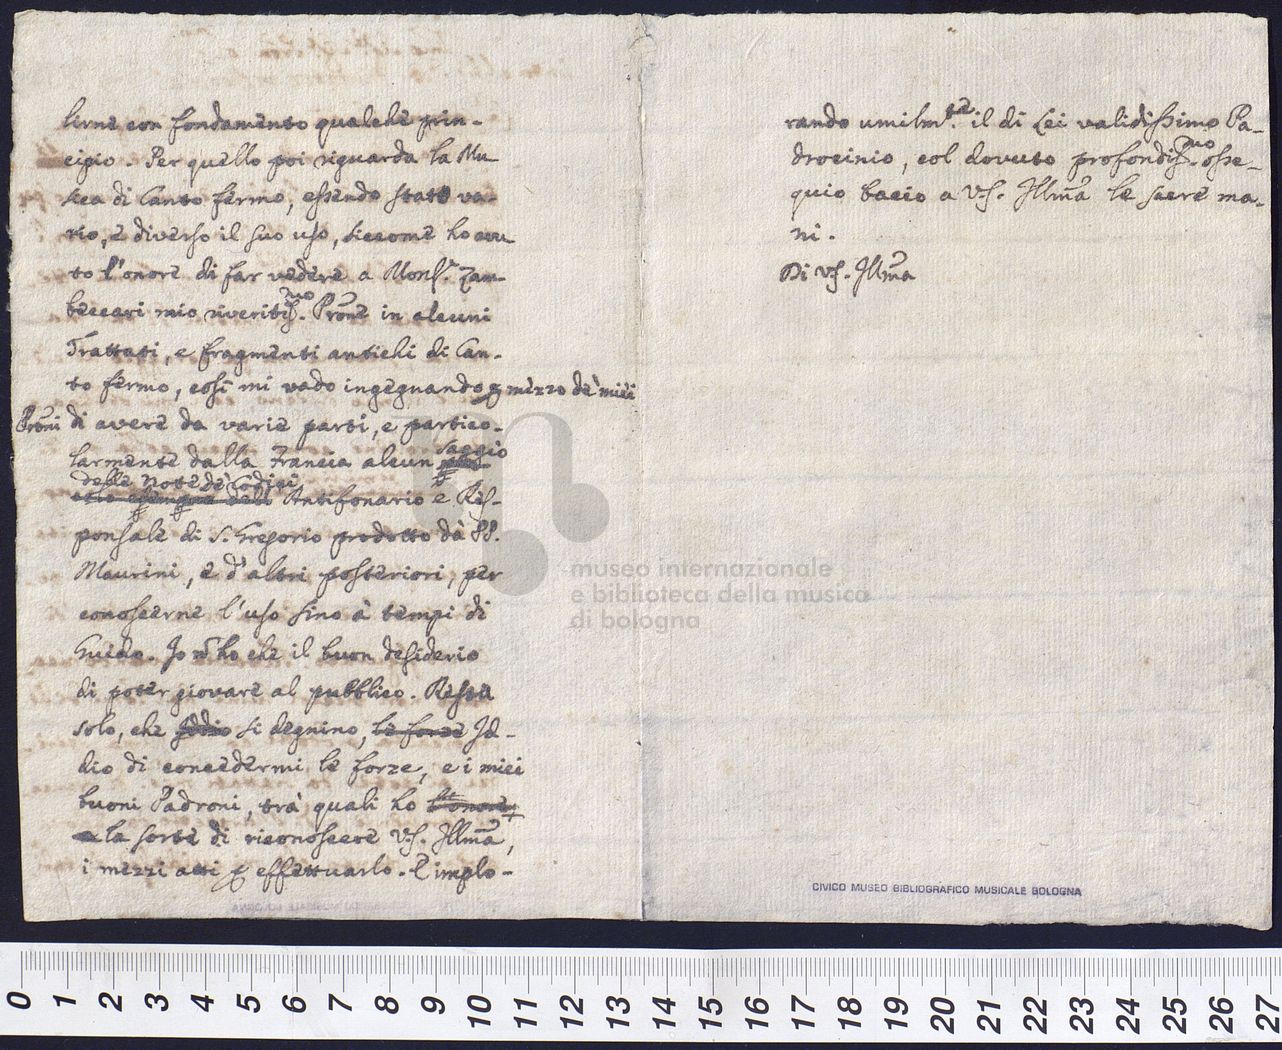 lirne con fondamento qualche prin-
cipio. Per quello poi riguarda la Mu-
sica di Canto fermo, essendo stato va-
rio, e diverso il suo uso, siccome ho avu
to l'onore di far vedere a Mons.r Zam-
beccari mio riveritis.mo Prone in alcuni
Trattati, e fragmenti antichi di Can-
to fermo, così mi vado ingegnando p mezzo de' miei
Proni di avere da varie parti, e partico-
larmente dalla Francia alcun saggio
delle Note de' Codici
Antifonario e Res-
ponsale di S. Gregorio prodotto dà PP.
Maurini, e d'altri posteriori, per
conoscerne l'uso sino à tempi di
Guido. Io nō ho che il buon desiderio
di poter giovare al pubblico. Resta
solo, che Iddio si degnino, le forze Id-
dio di concedermi le forze, e i miei
buoni Padroni, trà quali ho l'onore
la sorte di riconoscere V.S. Illma,
i mezzi atti p effettuarlo. E implo-
rando umilm.te il di Lei validissimo Pa-
drocinio, col dovuto profondis.mo osse-
quio bacio a V.S. Illma le sacre ma-
ni.
Di V.S. Illma
museo internazionale
e biblioteca della musica
di bologna
CIVICO MUSEO BIBLIOGRAFICO MUSICALE BOLOGNA
0 1 2 3 4 5 6 7 8 9 10 11 12 13 14 15 16 17 18 19 20 21 22 23 24 25 26 27